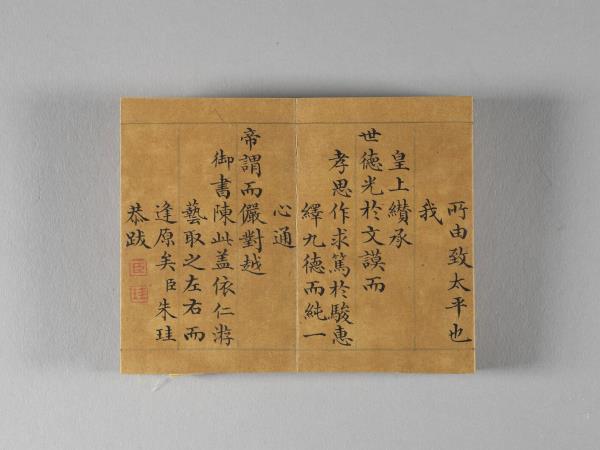 所由致太平也
我
皇上纘承
世德光於文謨而
孝思作求篤於駿惠
繹九德而純一
心通
帝謂而儼對越
御書陳此蓋依仁游
藝取之左右而
逢原矣臣朱珪
恭跋
臣
珪